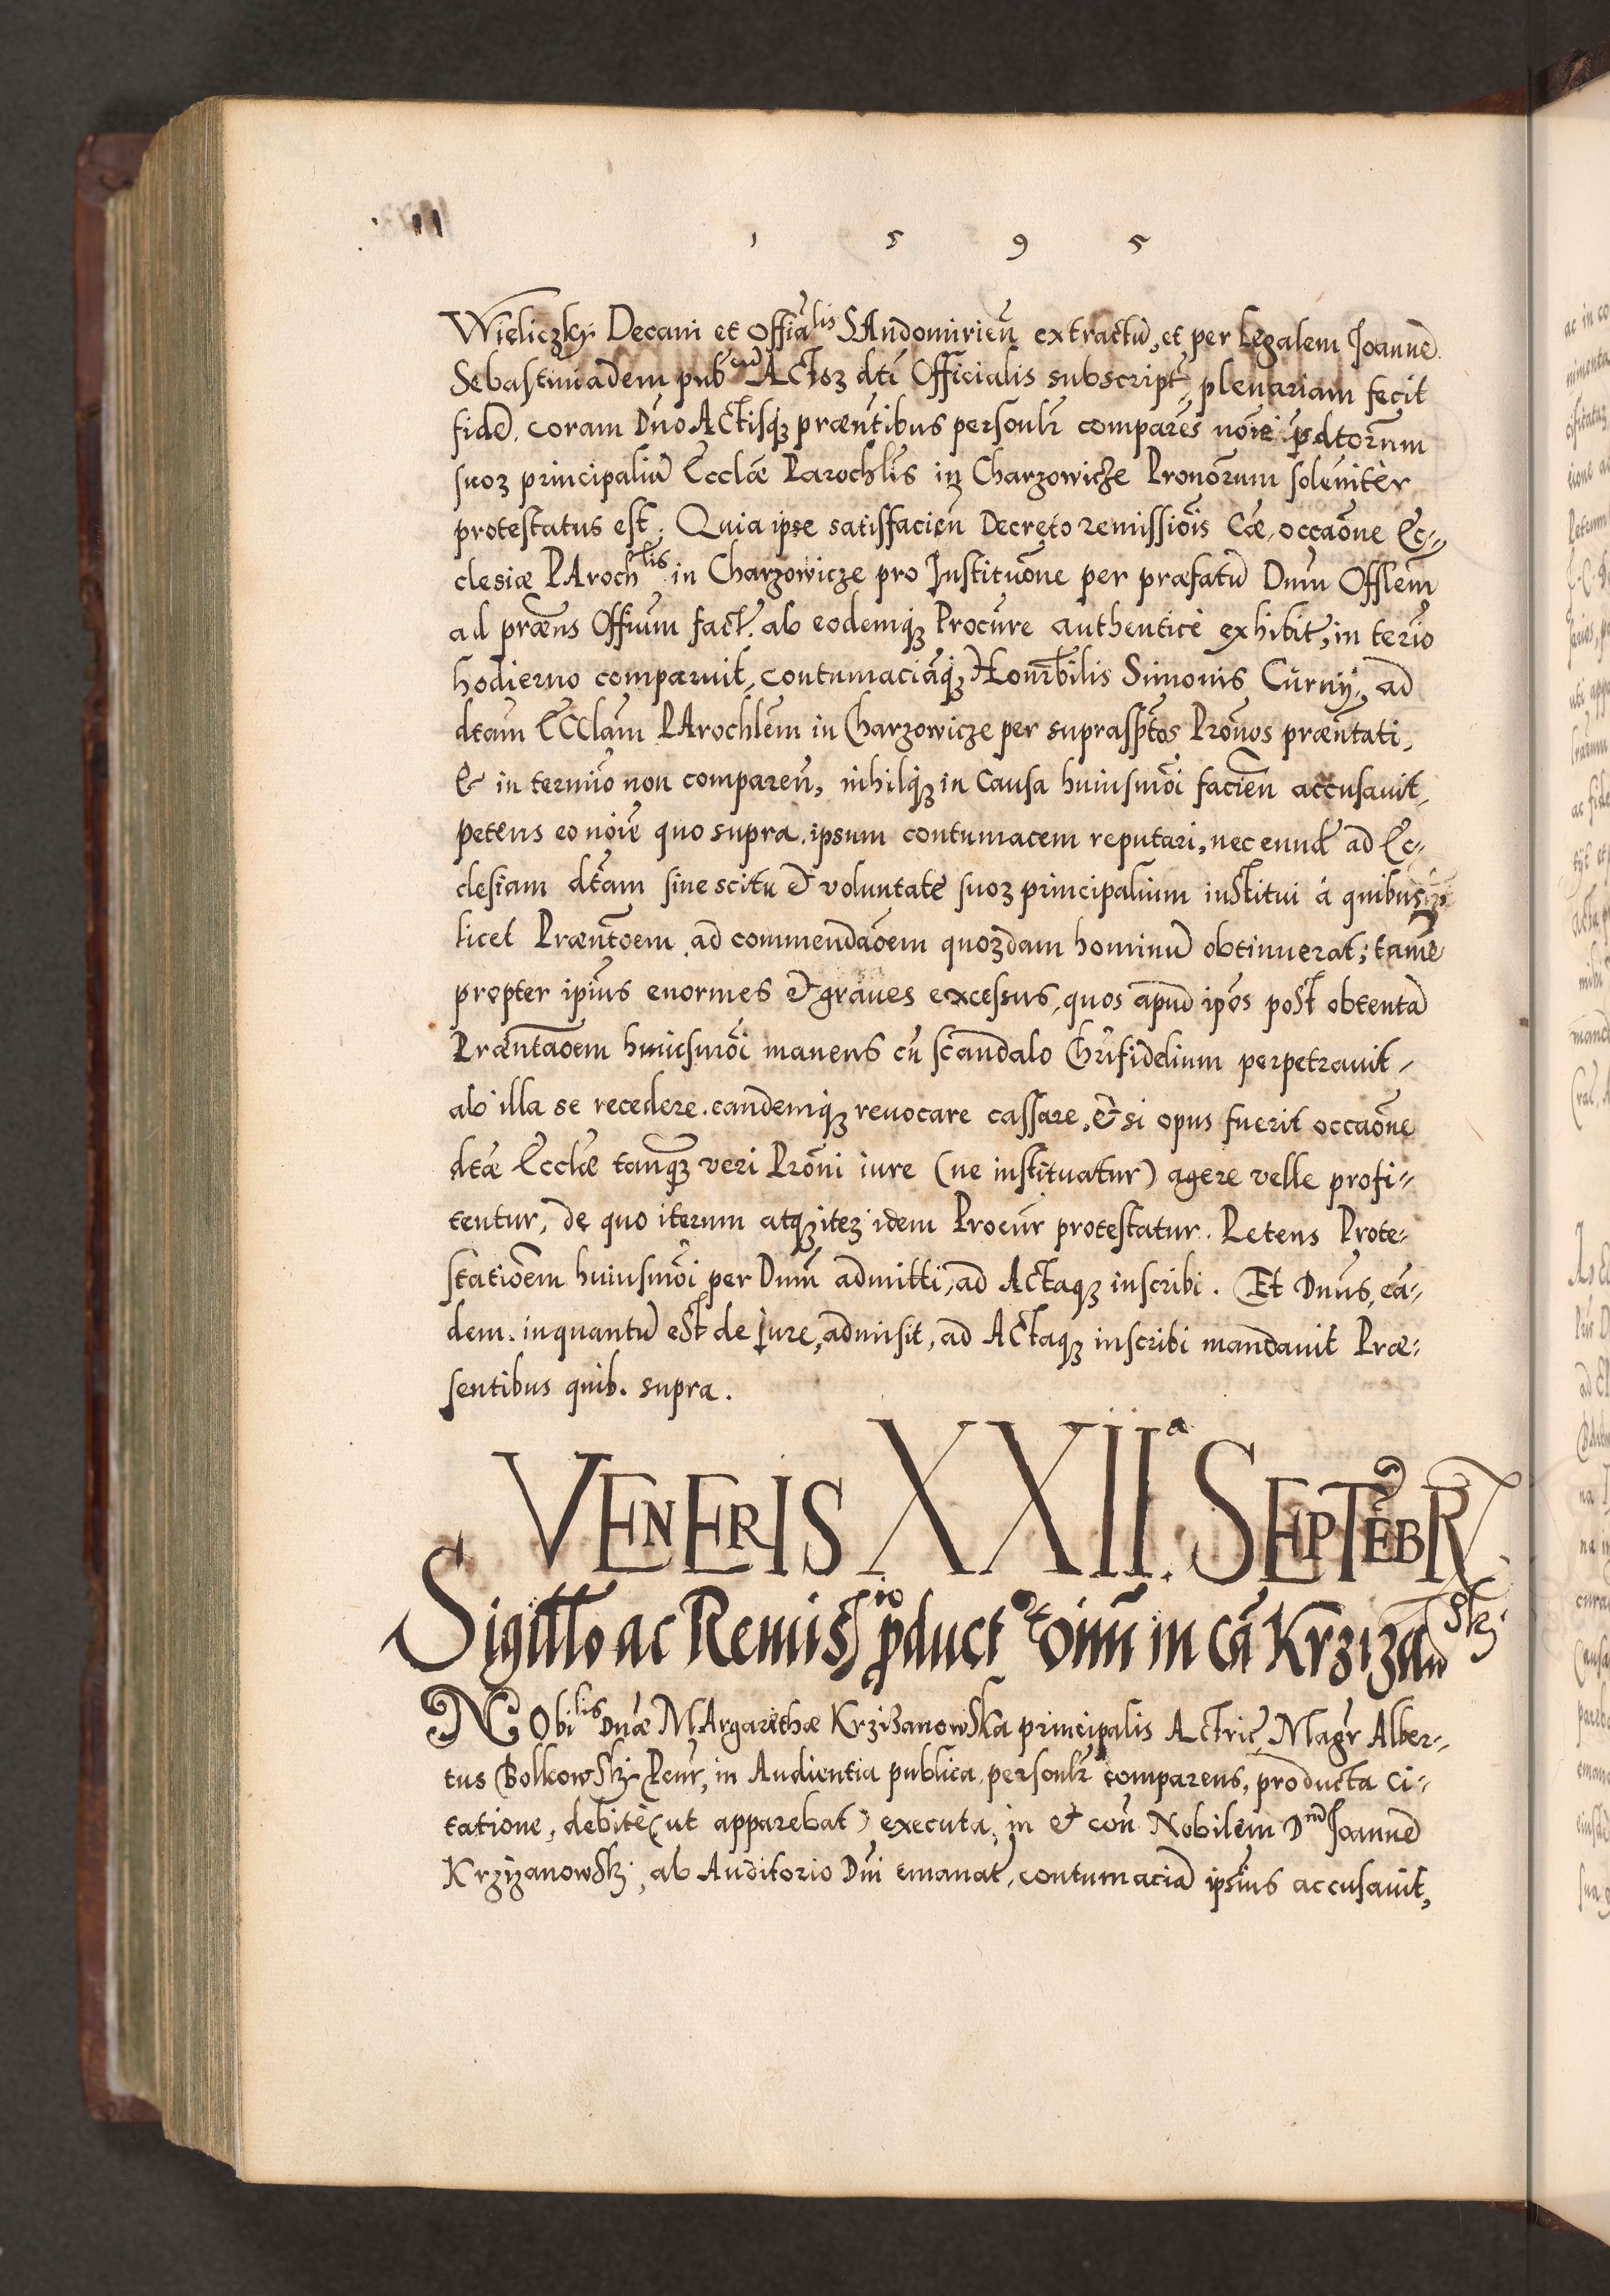 1 5 9 5
Wieliczky Decani et Offiālis SAndomirień extractū, et per Legalem Joannē
Sebastiniadem pubcū Actoꝝ dti Officialis subscript, plenariam fecit
fidē. coram Dno Actisqꝫ præntibus personlr comparēs noīe pdtorum
suoꝝ principaliū Ecclæ Parochlis in Charzowicze Pronorum soleniter
protestatus est. Quia ipse satisfacień Decreto remissiōis Cæ, occaōne Ec-
clesiæ PArochlis in Charzowicze pro Instituōne per præfatū Dnm Offlem
ad præns Offium fact. ab eodemqꝫ Procure authentice exhibit, in terīo
hodierno comparuit, contumaciāqꝫ Honrbilis Simonis Curnÿ, ad
dtam ECClam PArochlem in Charzowicze per suprasptos Pronos præntati,
& in termīo non compareń, nihilqꝫ in Causa huiusmōi facień accusauit,
petens eo noīe quo supra. ipsum contumacem reputari, nec eundē ad Ec-
clesiam dtam sine scitu & voluntate suoꝝ principalium institui à quibus
licet Præntōem ad commendaōem quoꝝdam hominū obtinuerat; tamē
propter ipius enormes & graues excessus, quos apud ipos post obtentā
Præntaōem huiusmōi manens cū scandalo Chrifidelium perpetrauit,
ab illa se recedere. eandemqꝫ reuocare cassare, & si opus fuerit occaōne
dtæ Ecclæ tanqꝫ veri Proni iure (ne instituatur) agere velle profi-
tentur, de quo iterum atqꝫ iteꝝ idem Procur protestatur. Petens Prote-
stationem huiusmōi per Dnm admitti, ad Actaqꝫ inscribi. Et Dnus, eā-
dem. inquantū est de jure, admisit, ad Actaqꝫ inscribi mandauit Præ-
sentibus quib. supra.
VENERIS XXIIa SEPTEBR
Sigillo ac Remissio pduct toīm in cā Krzizanowsky
NObilis Dnæ MArgarethæ Krzizanowska principalis Actric, Magr Alber-
tus Bolkowsky Pcur, in Audientia publica, personlr comparens, producta ci-
tatione, debite (ut apparebat) executa, in & con Nobilem Dnū Joannē
Krzÿzanowsky, ab Auditorio Dni emanat, contumaciā ipsius accusauit,